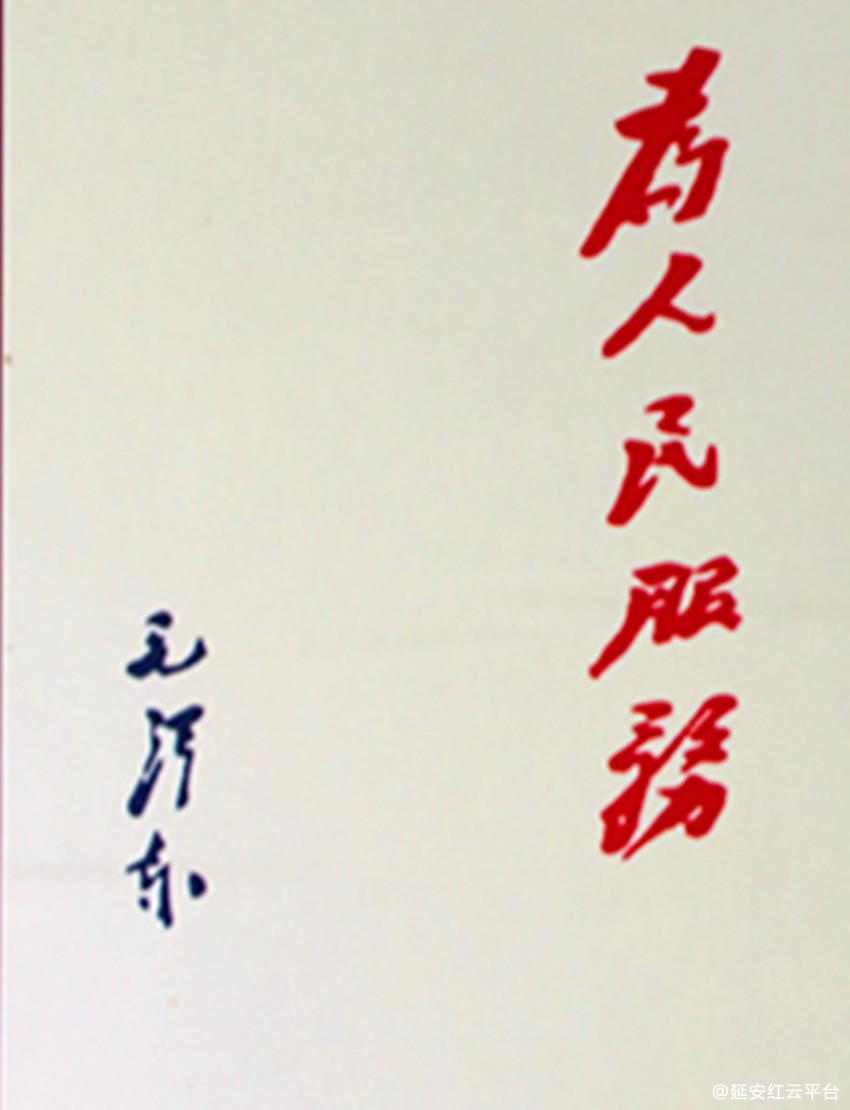 为人民服務
毛泽东
@延安红云平台